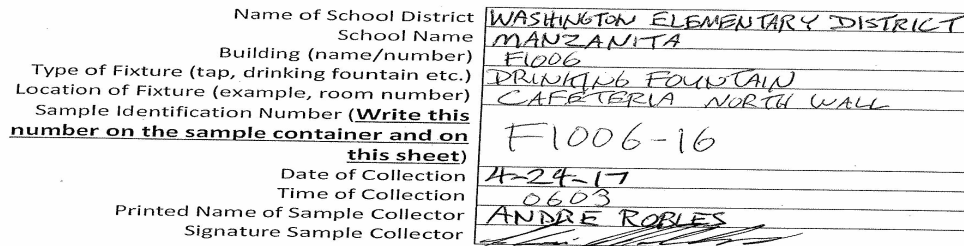 Name of School District WASHINGTON ELEMENTARY DISTRICT
School Name MANZANITA
Building (name/number) F1006
Type of Fixture (tap, drinking fountain etc.) DRINKING FOUNTAIN
Location of Fixture (example, room number) CAFETERIA NORTH WALL
Sample Identification Number (Write this
number on the sample container and on F1006-16
this sheet)
Date of Collection 4-24-17
Time of Collection 0603
Printed Name of Sample Collector ANDRE ROBLES
Signature Sample Collector